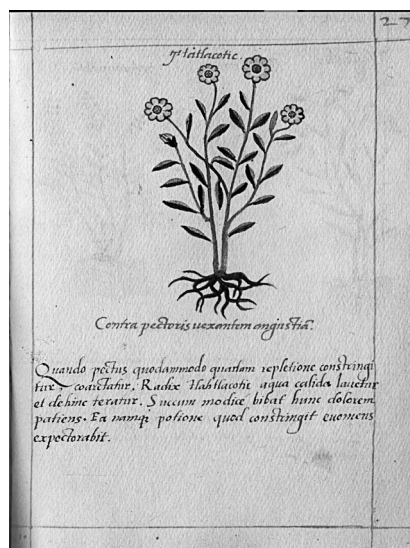 27
Tlatlacotic
Contra pectoris uexantem angustiã.
Quando pectus quodammodo quadam repletione constringi
tur, coarctatur. Radix Tlahtlacotic aqua calida lauetur
et dehinc teratur. Succum modicè bibat hunc dolorem
patiens. Ea namq; potione quod constringit euomens
expectorabit.